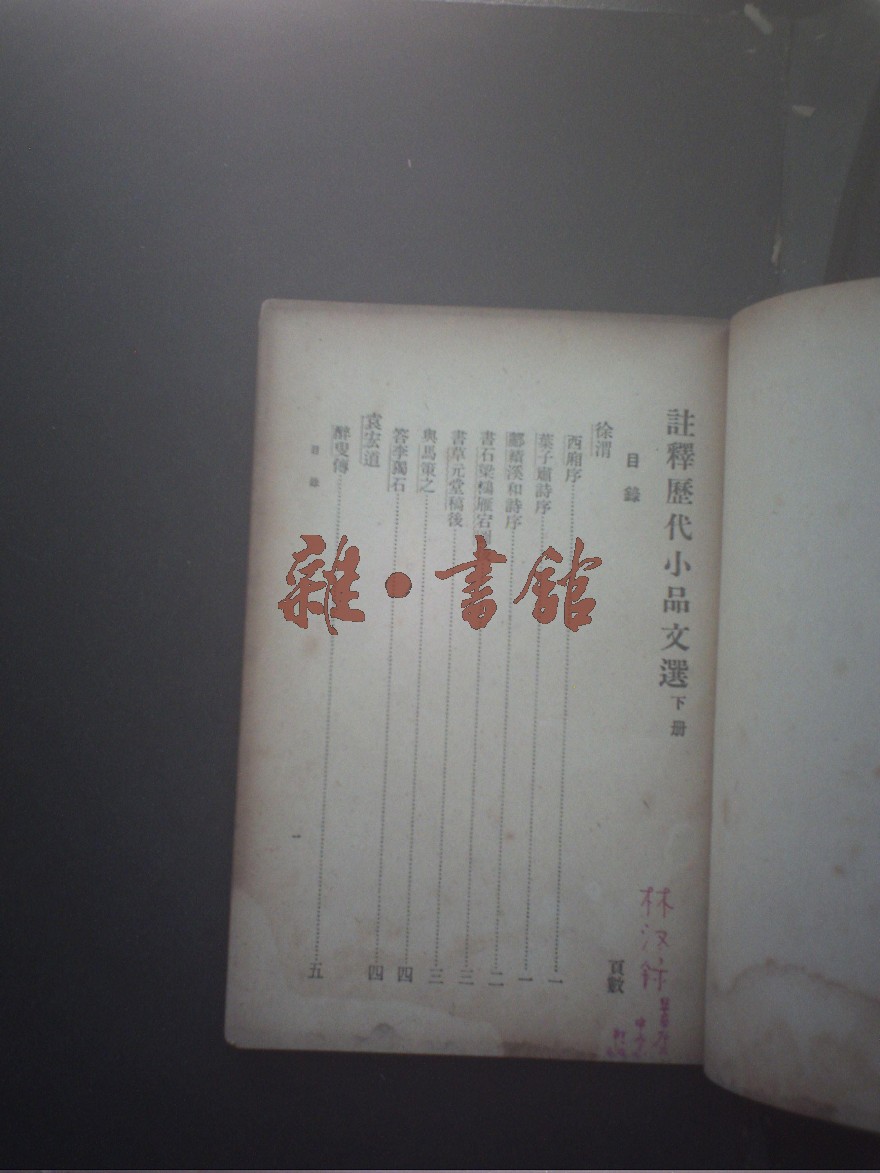 註釋歷代小品文選下册
目錄
頁數
徐渭
西廂序 一
葉子肅詩序 一
酈績溪和詩序 二
書石梁稿雁宕 三
書草元堂稿後 三
與馬策之 四
答李獨石 四
袁宏道
醉叟傳 五
目錄
一
雜·書館
林汉